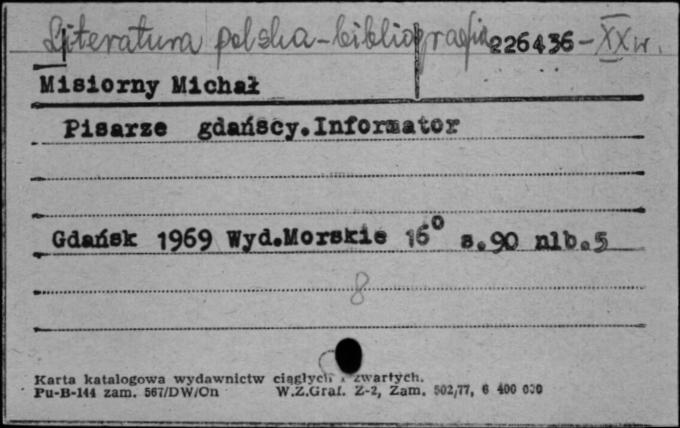 Literatura polska-bibliografia 226436-XX w.
Misiorny Michał
Pisarze gdańscy.Informator
Gdańsk 1969 Wyd.Morskie 16° s.90 nlb.5
8
Karta katalogowa wydawnictw ciągłych i zwartych.
Pu-B-144 zam. 567/DW/On W.Z.Graf. Z-2, Zam. 502/77, 6 400 000